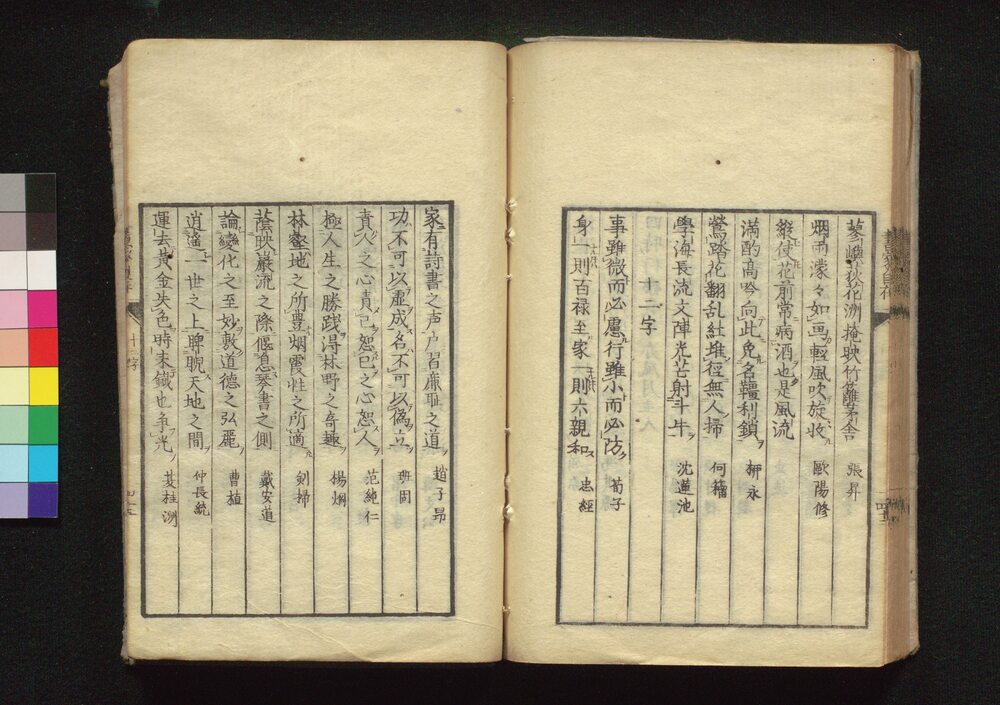 蓼嶼荻花洲掩映竹籬茅舎 張昇
烟雨濛々如画輕風吹旋收 歐陽修
縱使花前常病酒也是風流
滿酌高吟向此免名韁利鎖 柳永
鶯踏花翻乱紅堆徑無人掃 何籀
學海長流文陣光芒射斗牛 沈蓮池
十二字
事雖微而必慮行雖小而必防 荀子
身一則百禄至家一則六親和 忠經
家有詩書之声戸習廉耻之道 趙子昂
功不可以虚成名不可以偽立 班固
責人之心責己恕己之心恕人 范純仁
極人生之勝践淂林野之奇趣 楊炯
林壑地之所豊烟霞性之所適 剣掃
蔭映巖流之際偃息琴書之側 戴安道
論變化之至妙敷道德之弘麗 曹植
逍遙一世之上睥睨天地之間 仲長統
運去黄金失色時来鐵也争光 艾桂洲
十二字